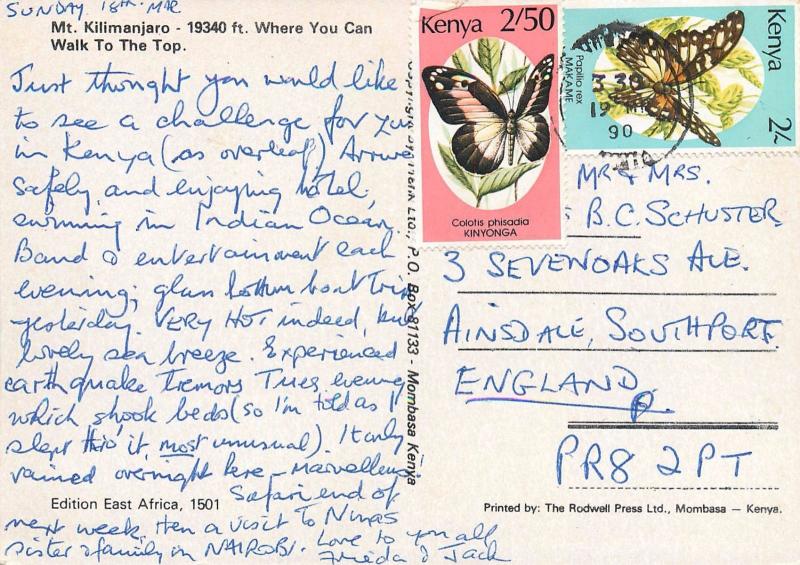 SUNDAY 18th MAR
Mt. Kilimanjaro - 19340 ft. Where You Can
Walk To The Top.
Just thought you would like
to see a challenge for you
in Kenya (as overleaf) Arrived
safely and enjoying hotel,
swimming in Indian Ocean.
Band & entertainment each
evening; glass bottom boat Trip
yesterday. VERY HOT indeed, but
lovely sea breeze. Experienced
earthquake Tremors Tues. evening
which shook beds (so I'm told as I
slept thro' it, most unusual). It only
rained overnight here - Marvellous!
Edition East Africa, 1501
Safari end of
next week, then a visit to Nina's
sister & family in NAIROBI. Love to you all
Frieda & Jack
Ltd., P.O. Box 81133 - Mombasa Kenya
Kenya 2/50
Colotis phisadia
KINYONGA
Kenya 2/-
Papilio rex
MAKAME
3.30
19
90
MR & MRS.
B.C. SCHUSTER
3 SEVENOAKS AVE.
AINSDALE, SOUTHPORT.
ENGLAND
PR8 2PT
Printed by: The Rodwell Press Ltd., Mombasa — Kenya.